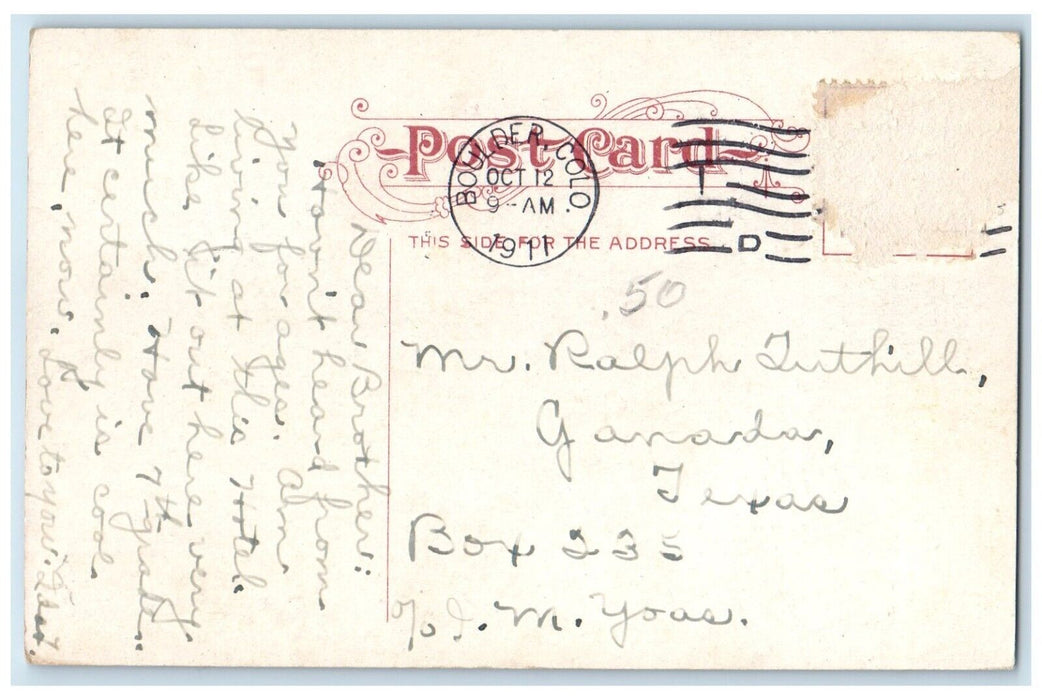 Post Card
BOULDER, COLO.
OCT 12
9-AM
1911
D
THIS SIDE FOR THE ADDRESS
.50
Mr. Ralph Tuthill,
Ganado,
Texas
Box 235
c/o J. M. Yoas.
Dear Brother:
Hav'nt heard from
you for ages. Am
living at this Hotel.
Like it out here very
much. Have 7th grade.
It certainly is cool
here, now. Love to you.